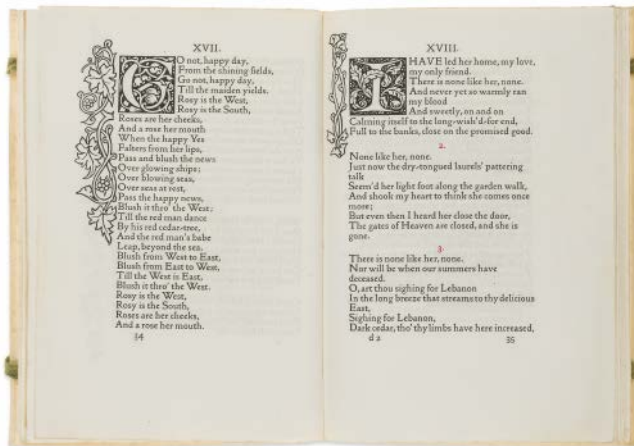 XVII.
GO not, happy day,
From the shining fields,
Go not, happy day,
Till the maiden yields.
Rosy is the West,
Rosy is the South,
Roses are her cheeks,
And a rose her mouth
When the happy Yes
Falters from her lips,
Pass and blush the news
Over glowing ships;
Over blowing seas,
Over seas at rest,
Pass the happy news,
Blush it thro' the West;
Till the red man dance
By his red cedar-tree,
And the red man's babe
Leap, beyond the sea.
Blush from West to East,
Blush from East to West,
Till the West is East,
Blush it thro' the West.
Rosy is the West,
Rosy is the South,
Roses are her cheeks,
And a rose her mouth.
34
XVIII.
I HAVE led her home, my love,
my only friend.
There is none like her, none.
And never yet so warmly ran
my blood
And sweetly, on and on
Calming itself to the long-wish'd-for end,
Full to the banks, close on the promised good.
2.
None like her, none.
Just now the dry-tongued laurels' pattering
talk
Seem'd her light foot along the garden walk,
And shook my heart to think she comes once
more;
But even then I heard her close the door,
The gates of Heaven are closed, and she is
gone.
3.
There is none like her, none.
Nor will be when our summers have
deceased.
O, art thou sighing for Lebanon
In the long breeze that streams to thy delicious
East,
Sighing for Lebanon,
Dark cedar, tho' thy limbs have here increased,
d2
35